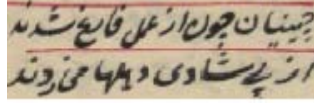 چینیان چون از عمل فارغ شدند
از پی شادی دهلها می زدند